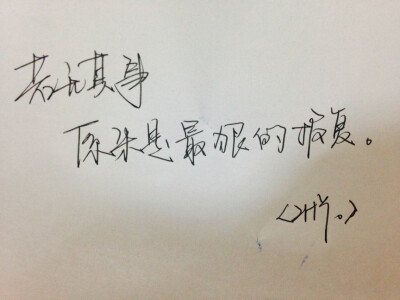 若无其事
原来是最狠的报复。